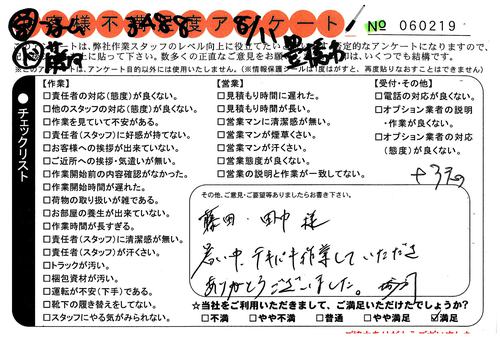 お客様不満足度アンケート
No 060219
3488 8/11 豊橋市
このアンケートは、弊社作業スタッフのレベル向上に役立てたい
定的なアンケートになりますので、
上に貼って下さい。数多くの正直なご意見をお
は、いくつでも結構です。
※このアンケートは、アンケート目的以外には使用いたしません。(※情報保護シールは1度はがすと、再度貼りなおすことはできません)
チェックリスト
【作業】
□責任者の対応(態度)が良くない。
□他のスタッフの対応(態度)が良くない。
□作業を見ていて不安がある。
□責任者(スタッフ)に好感が持てない。
□お客様への挨拶が出来ていない。
□ご近所への挨拶・気遣いが無い。
□作業開始前の内容確認がなかった。
□作業開始時間が遅れた。
□荷物の取り扱いが雑である。
□お部屋の養生が出来ていない。
□作業時間が長すぎる。
□責任者(スタッフ)に清潔感が無い。
□責任者(スタッフ)が汗くさい。
□トラックが汚い。
□梱包資材が汚い。
□運転が不安(下手)である。
□靴下の履き替えをしてない。
□スタッフにやる気がみられない。
【営業】
□見積もり時間に遅れた。
□見積もり時間が長い。
□営業マンに清潔感が無い。
□営業マンが煙草くさい。
□営業マンが汗くさい。
□営業態度が良くない。
□営業の説明と作業が一致してない。
【受付・その他】
□電話の対応が良くない。
□オプション業者の説明
・作業が良くない。
□オプション業者の対応
(態度)が良くない。
その他、ご意見・ご要望等ありましたらお書き下さい。
藤田・田中様
暑い中、テキパキ作業していただき
ありがとうございました。
☆当社をご利用いただきまして、ご満足いただけたでしょうか?
□不満 □やや不満 □普通 □やや満足 ☑満足